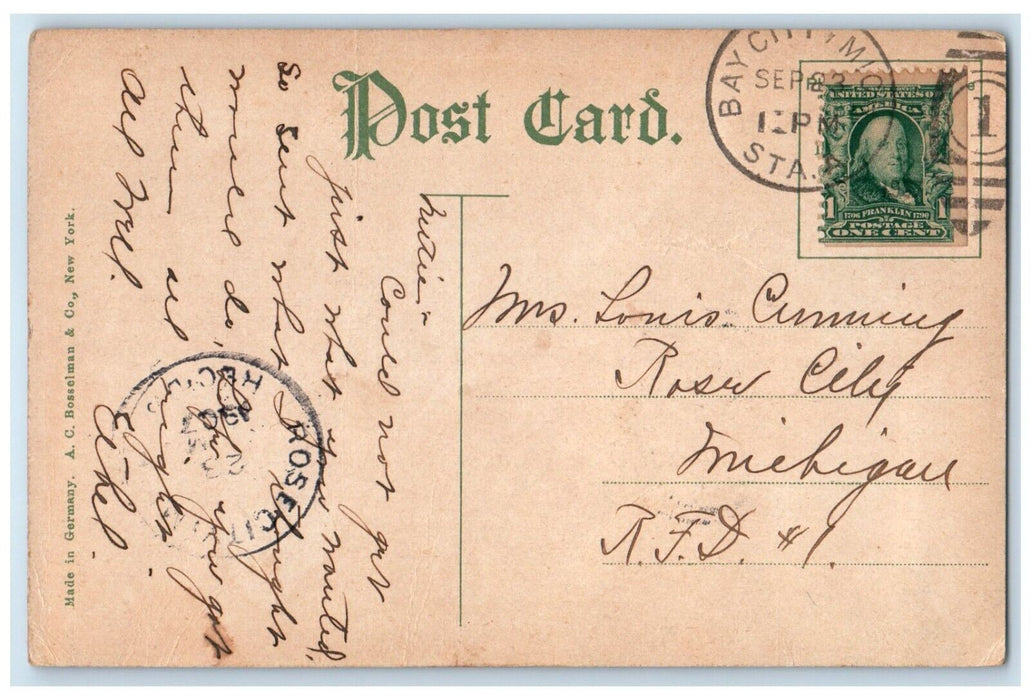 Post Card.
BAY CITY, MICH
SEP 23
12 PM
STA.
1
UNITED STATES OF
AMERICA
1706 FRANKLIN 1790
1 POSTAGE 1
ONE CENT
Mrs. Louis Cumming
Rose City
Michigan
R.F.D. #1.
Nettie"
Could not get
just what you wanted,
so sent what I thought
would do, hope you got
them all right
All well.
Ethel.
ROSE CITY
REC'D
23
Made in Germany. A. C. Bosselman & Co., New York.